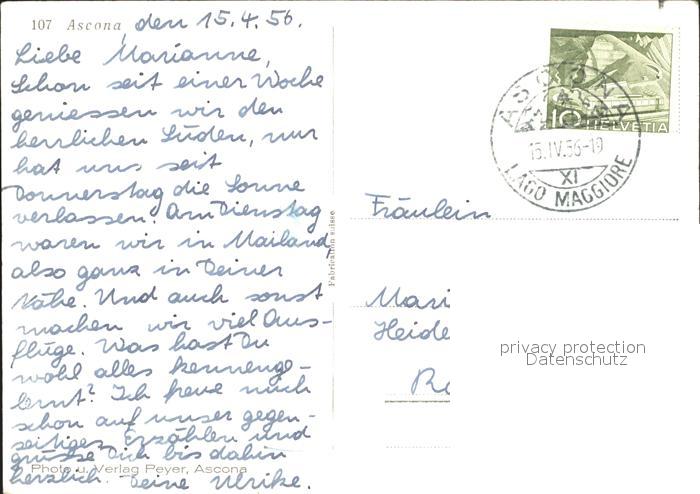 107 Ascona, den 15.4.56.
Liebe Marianne,
Schon seit einer Woche
geniessen wir den
herrlichen Süden, nur
hat uns seit
Donnerstag die Sonne
verlassen. Am Dienstag
waren wir in Mailand
also ganz in Deiner
Nähe. Und auch sonst
machen wir viel Aus-
flüge. Was hast Du
wohl alles kennenge-
lernt? Ich freue mich
schon auf unser gegen-
seitiges Erzählen und
grüsse Dich bis dahin
Photo u. Verlag Peyer, Ascona
herzlich. Deine Ulrike.
Fabrication suisse
10 HELVETIA
ASCONA
15.IV.56-19
XI
LAGO MAGGIORE
Fräulein
Mari
Heide
privacy protection
Datenschutz